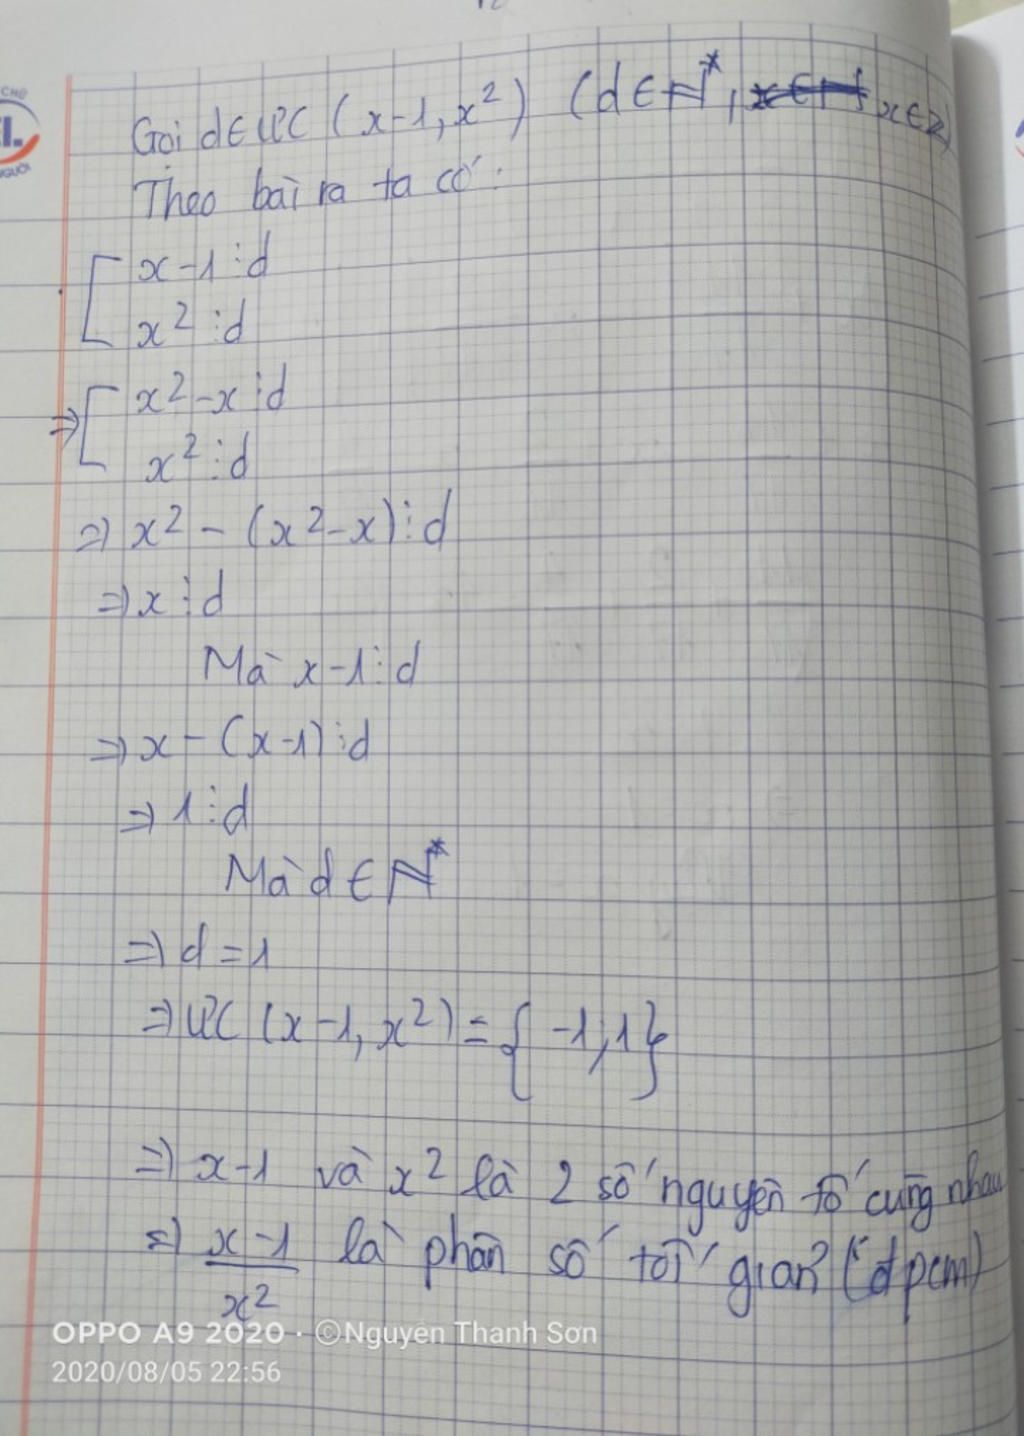 Gọi d∈ƯC (x-1, x²) (d∈N*, x∈Z)
Theo bài ra ta có:
[ x-1⋮d
x²⋮d
⇒[ x²-x⋮d
x²⋮d
⇒ x² - (x²-x)⋮d
⇒ x⋮d
Mà x-1⋮d
⇒ x - (x-1)⋮d
⇒ 1⋮d
Mà d∈N*
⇒ d = 1
⇒ ƯC (x-1, x²) = { -1; 1}
⇒ x-1 và x² là 2 số nguyên tố cùng nhau
⇒ x-1 là phân số tối giản (đpcm)
x²
OPPO A9 2020 · ©Nguyễn Thanh Sơn
2020/08/05 22:56